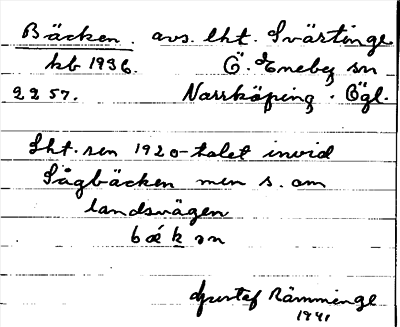 Bäcken. avs. lht. Svärtinge
kb 1936. Ö. Eneby sn
2257. Norrköping. Ögl.
Lht. sen 1920-talet invid
Sågbäcken men s. om
landsvägen
Gustaf Rämminge
1941